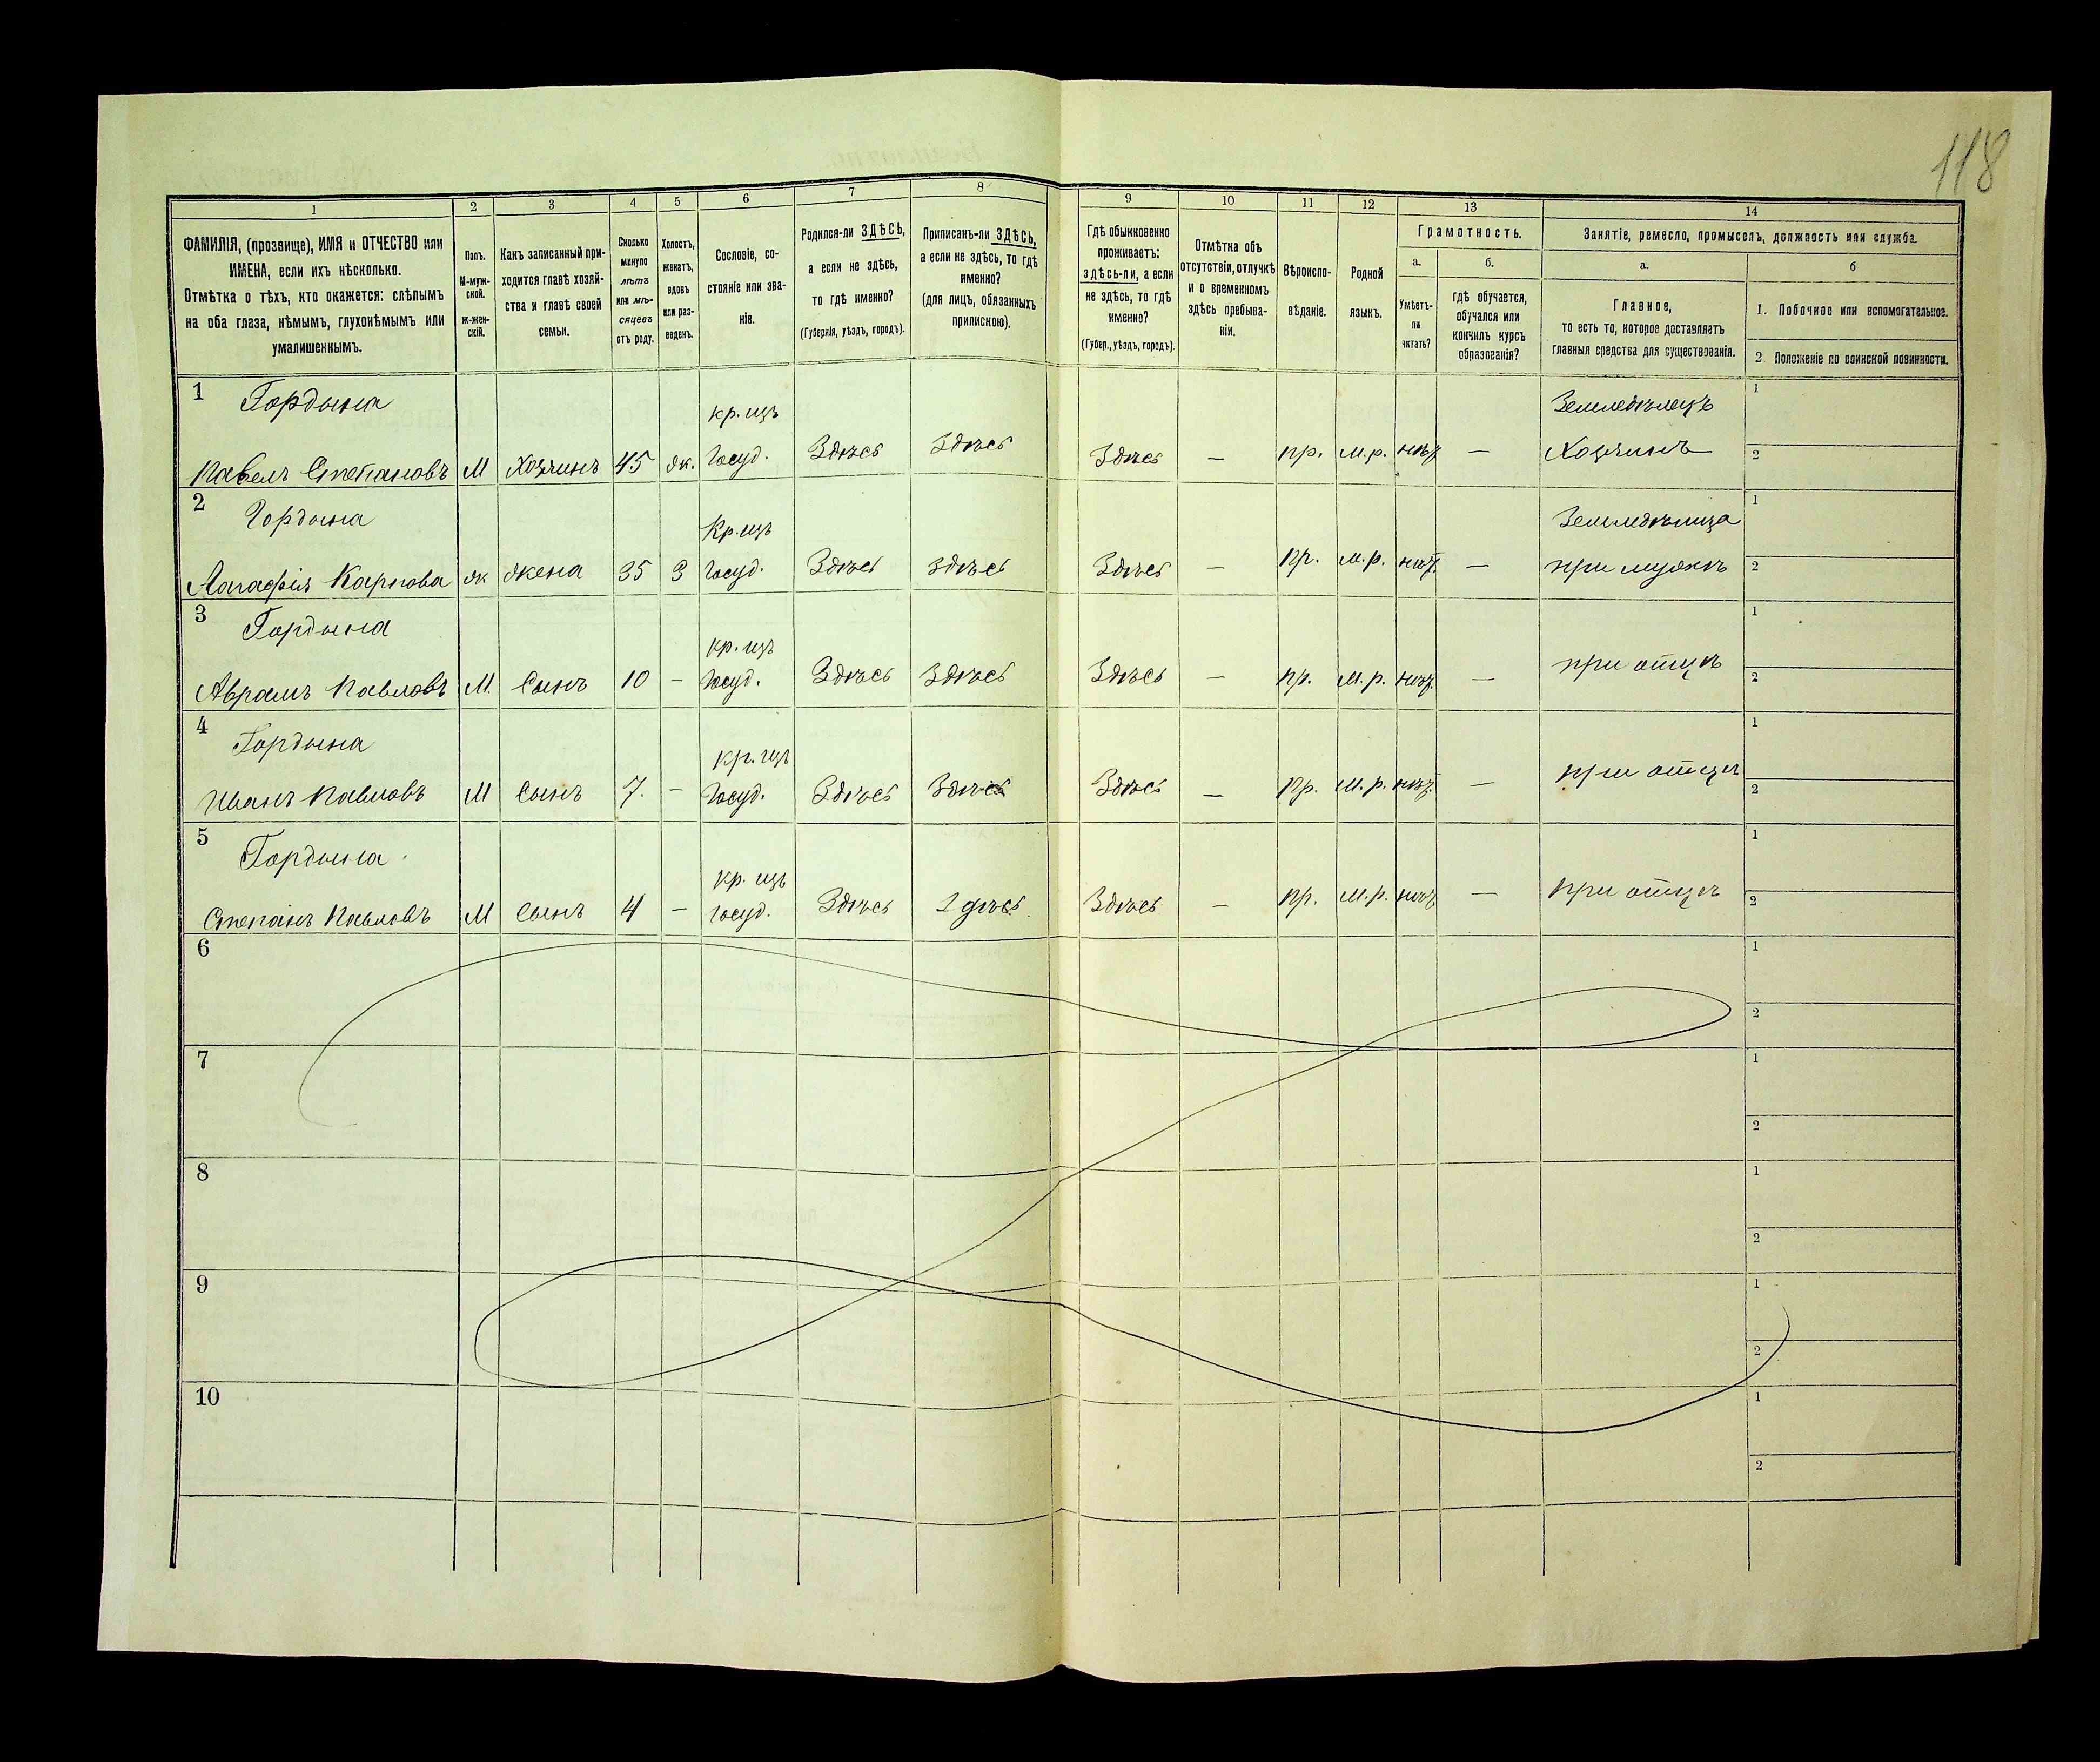 118
1
2
3
4
5
6
7
8
9
10
11
12
13
14
ФАМИЛІЯ, (прозвище), ИМЯ и ОТЧЕСТВО или
ИМЕНА, если ихъ нѣсколько.
Отмѣтка о тѣхъ, кто окажется: слѣпымъ
на оба глаза, нѣмымъ, глухонѣмымъ или
умалишеннымъ.
Полъ.
М-муж-
ской.
ж-жен-
скій.
Какъ записанный при-
ходится главѣ хозяй-
ства и главѣ своей
семьи.
Сколько
минуло
лѣтъ
или мѣ-
сяцевъ
отъ роду.
Холостъ,
женатъ,
вдовъ
или раз-
веденъ.
Сословіе, со-
стояніе или зва-
ніе.
Родился-ли ЗДѢСЬ,
а если не здѣсь,
то гдѣ именно?
(Губернія, уѣздъ, городъ).
Приписанъ-ли ЗДѢСЬ,
а если не здѣсь, то гдѣ
именно?
(для лицъ, обязанныхъ
припискою).
Гдѣ обыкновенно
проживаетъ:
здѣсь-ли, а если
не здѣсь, то гдѣ
именно?
(Губер., уѣздъ, городъ).
Отмѣтка объ
отсутствіи, отлучкѣ
и о временномъ
здѣсь пребыва-
ніи.
Вѣроиспо-
вѣданіе.
Родной
языкъ.
Грамотность.
а.
Умѣетъ-
ли
читать?
б.
гдѣ обучается,
обучался или
кончилъ курсъ
образованія?
Занятіе, ремесло, промыселъ, должность или служба.
а.
Главное,
то есть то, которое доставляетъ
главныя средства для существованія.
б
1. Побочное или вспомогательное.
2. Положеніе по воинской повинности.
1 Гордына кр. изъ Земледѣлецъ 1
Павелъ Степановъ М Хозяинъ 45 ж. Госуд. Здѣсь Здѣсь Здѣсь — пр. м.р. нѣт — Хозяинъ 2
2 Гордына Кр. изъ Земледѣлица 1
Агафія Карпова ж жена 35 З Госуд. Здѣсь здѣсь Здѣсь — пр. м.р. нѣт. — при мужѣ 2
3 Гордына кр. изъ 1
Аврамъ Павловъ М. Сынъ 10 — Госуд. Здѣсь Здѣсь Здѣсь — пр. м.р. нѣт. — при отцѣ 2
4 Гордына кр. изъ 1
Иванъ Павловъ М Сынъ 7. — Госуд. Здѣсь Здѣсь Здѣсь — пр. м.р. нѣт. — при отцѣ 2
5 Гордына кр. изъ 1
Степанъ Павловъ М Сынъ 4 — Госуд. Здѣсь Здѣсь Здѣсь — пр. м.р. нѣт — при отцѣ 2
6 1
2
7 1
2
8 1
2
9 1
2
10 1
2